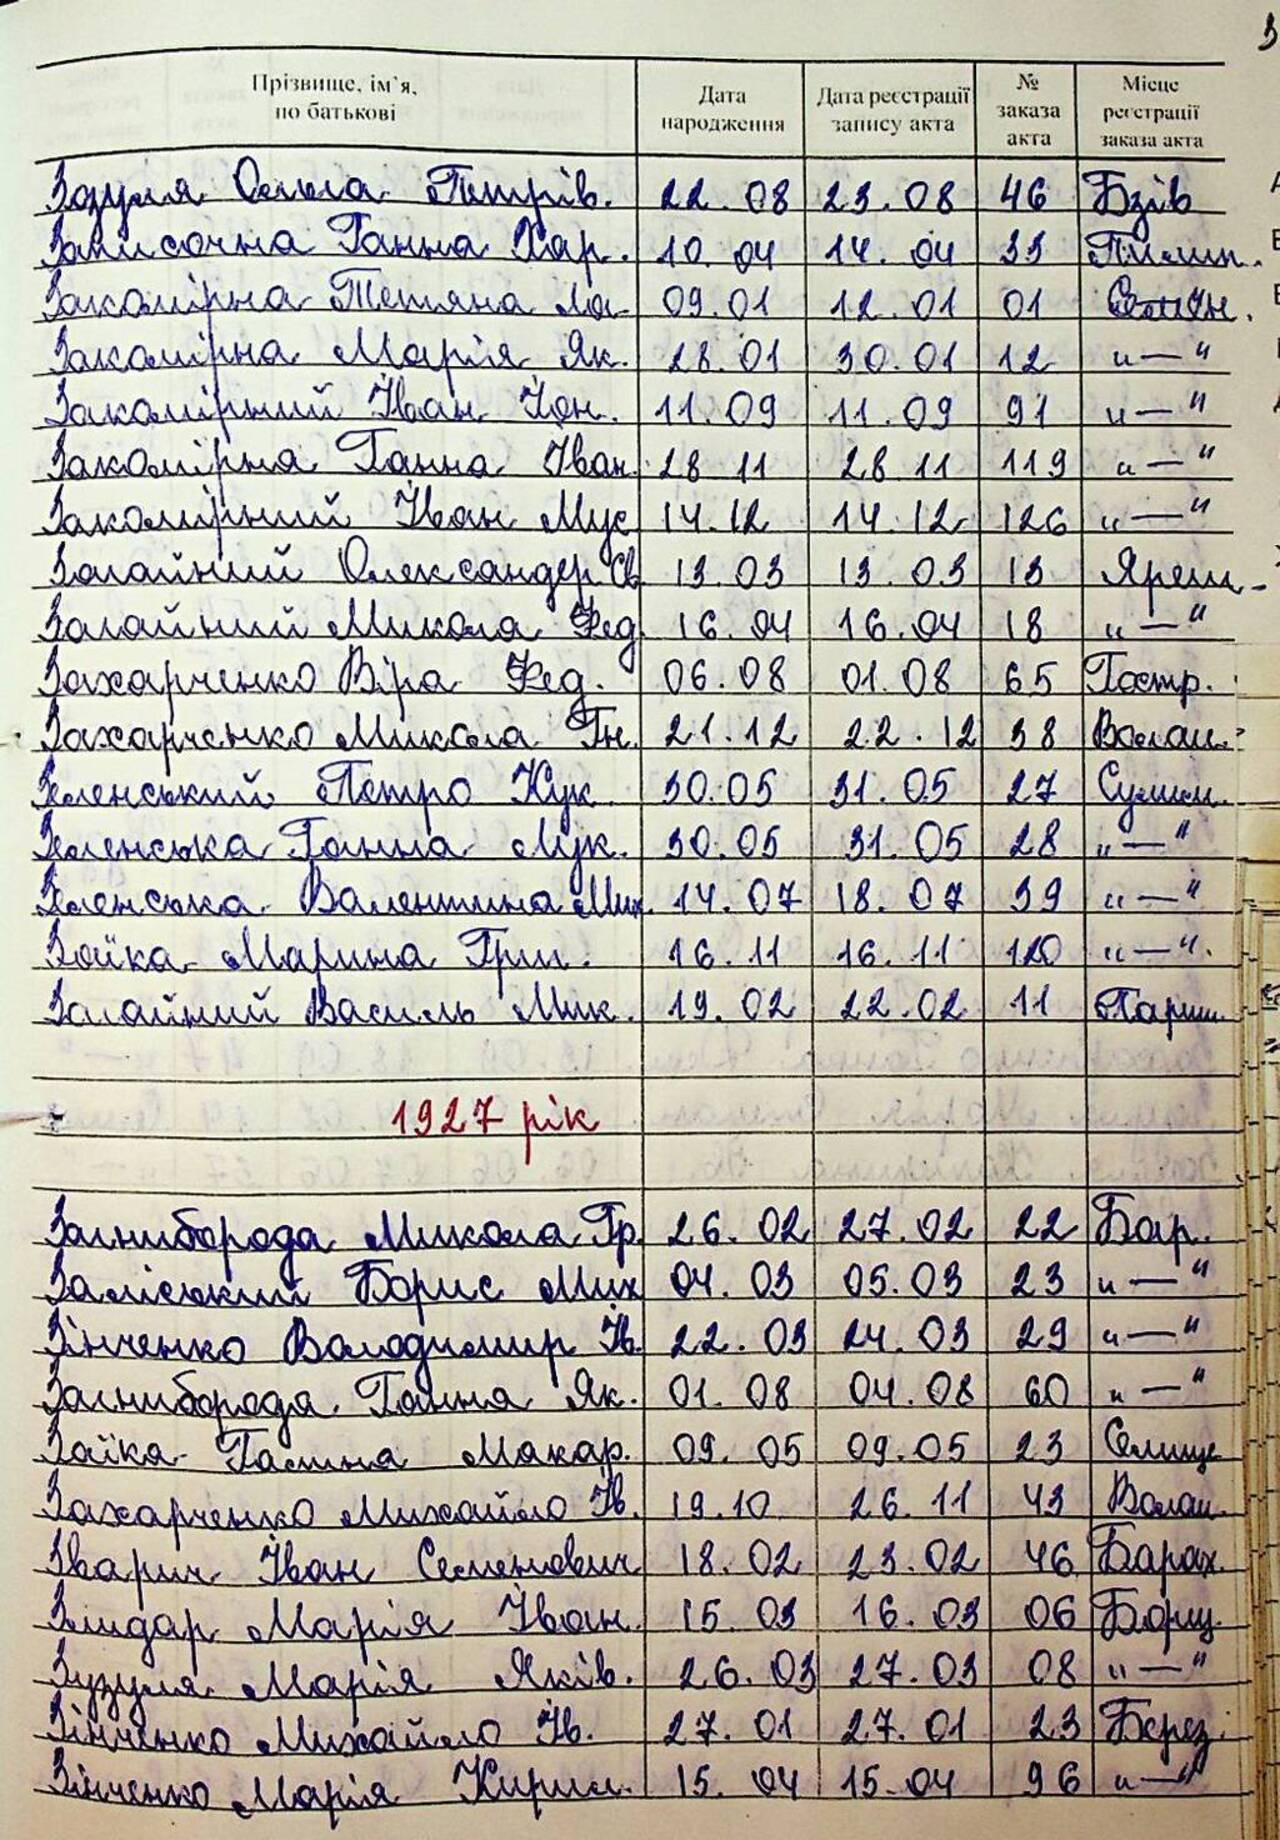 Прізвище, ім'я, по батькові | Дата народження | Дата реєстрації запису акта | № заказа акта | Місце реєстрації заказа акта
Зозуля Ольга Петрів. 22.08 23.08 46 Бзів
Записочна Ганна Хар. 10.04 14.04 33 Пилип.
Закомірна Тетяна Ла- 09.01 12.01 01
Закомірна Марія Як. 28.01 30.01 12 "—"
Закомірний Іван Йон. 11.09 11.09 91 "—"
Закомірна Ганна Іван. 28 11 28 11 119 "—"
Закомірний Іван Мус 14.12 14.12 126 "—"
Загайний Олександер Св. 13.03 13.03 13 Яреш-
Загайний Микола Фед. 16.04 16.04 18 "—"
Захарченко Віра Фед. 06.08 01.08 65 Гостр.
Захарченко Микола Гн. 21.12 22.12 38 Волош.
Зеленський Петро Кук. 30.05 31.05 27 Сулим.
Зеленська Ганна Лук. 30.05 31.05 28 "—"
Зеленська Валентина Мих. 14.07 18.07 39 "—"
Заїка Марина Григ. 16.11 16.11 120 "—".
Загайний Василь Мик. 19.02 22.02 11 Париш.
1927 рік
Загниборода Микола Гр. 26.02 27.02 22 Бар.
Заліський Борис Мих 04.03 05.03 23 "—"
Зінченко Володимир Ів. 22.03 24.03 29 "—"
Загниборода Ганна Як. 01.08 04.08 60 "—"
Заїка Галина Макар. 09.05 09.05 23 Селище
Захарченко Михайло Ів. 19.10 26.11 43 Волош.
Зварич Іван Семенович 18.02 23.02 46 Барах.
Злидар Марія Іван. 15.03 16.03 06 Борщ.
Зузуля Марія Яків. 26.03 27.03 08 "—"
Зінченко Михайло Ів. 27.01 27.01 23 Берез.
Зінченко Марія Кирил. 15.04 15.04 96 "—"